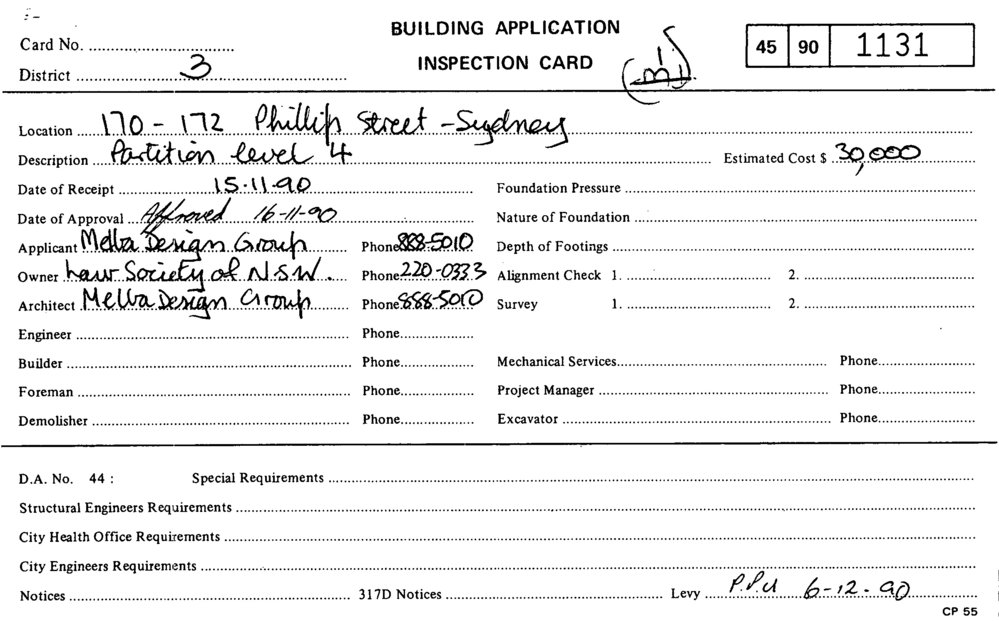 BUILDING APPLICATION
INSPECTION CARD
45 90 1131
Card No.
District 3
Location 170 - 172 Phillip Street - Sydney
Description Partition level 4 Estimated Cost $ 30,000
Date of Receipt 15.11.90 Foundation Pressure
Date of Approval Approved 16-11-90 Nature of Foundation
Applicant Melba Design Group Phone 888-5010 Depth of Footings
Owner Law Society of N.S.W. Phone 220-0333 Alignment Check 1. 2.
Architect Melba Design Group Phone 888-5010 Survey 1. 2.
Engineer Phone
Builder Phone Mechanical Services Phone
Foreman Phone Project Manager Phone
Demolisher Phone Excavator Phone
D.A. No. 44 : Special Requirements
Structural Engineers Requirements
City Health Office Requirements
City Engineers Requirements
Notices 317D Notices Levy 6-12-90
CP 55